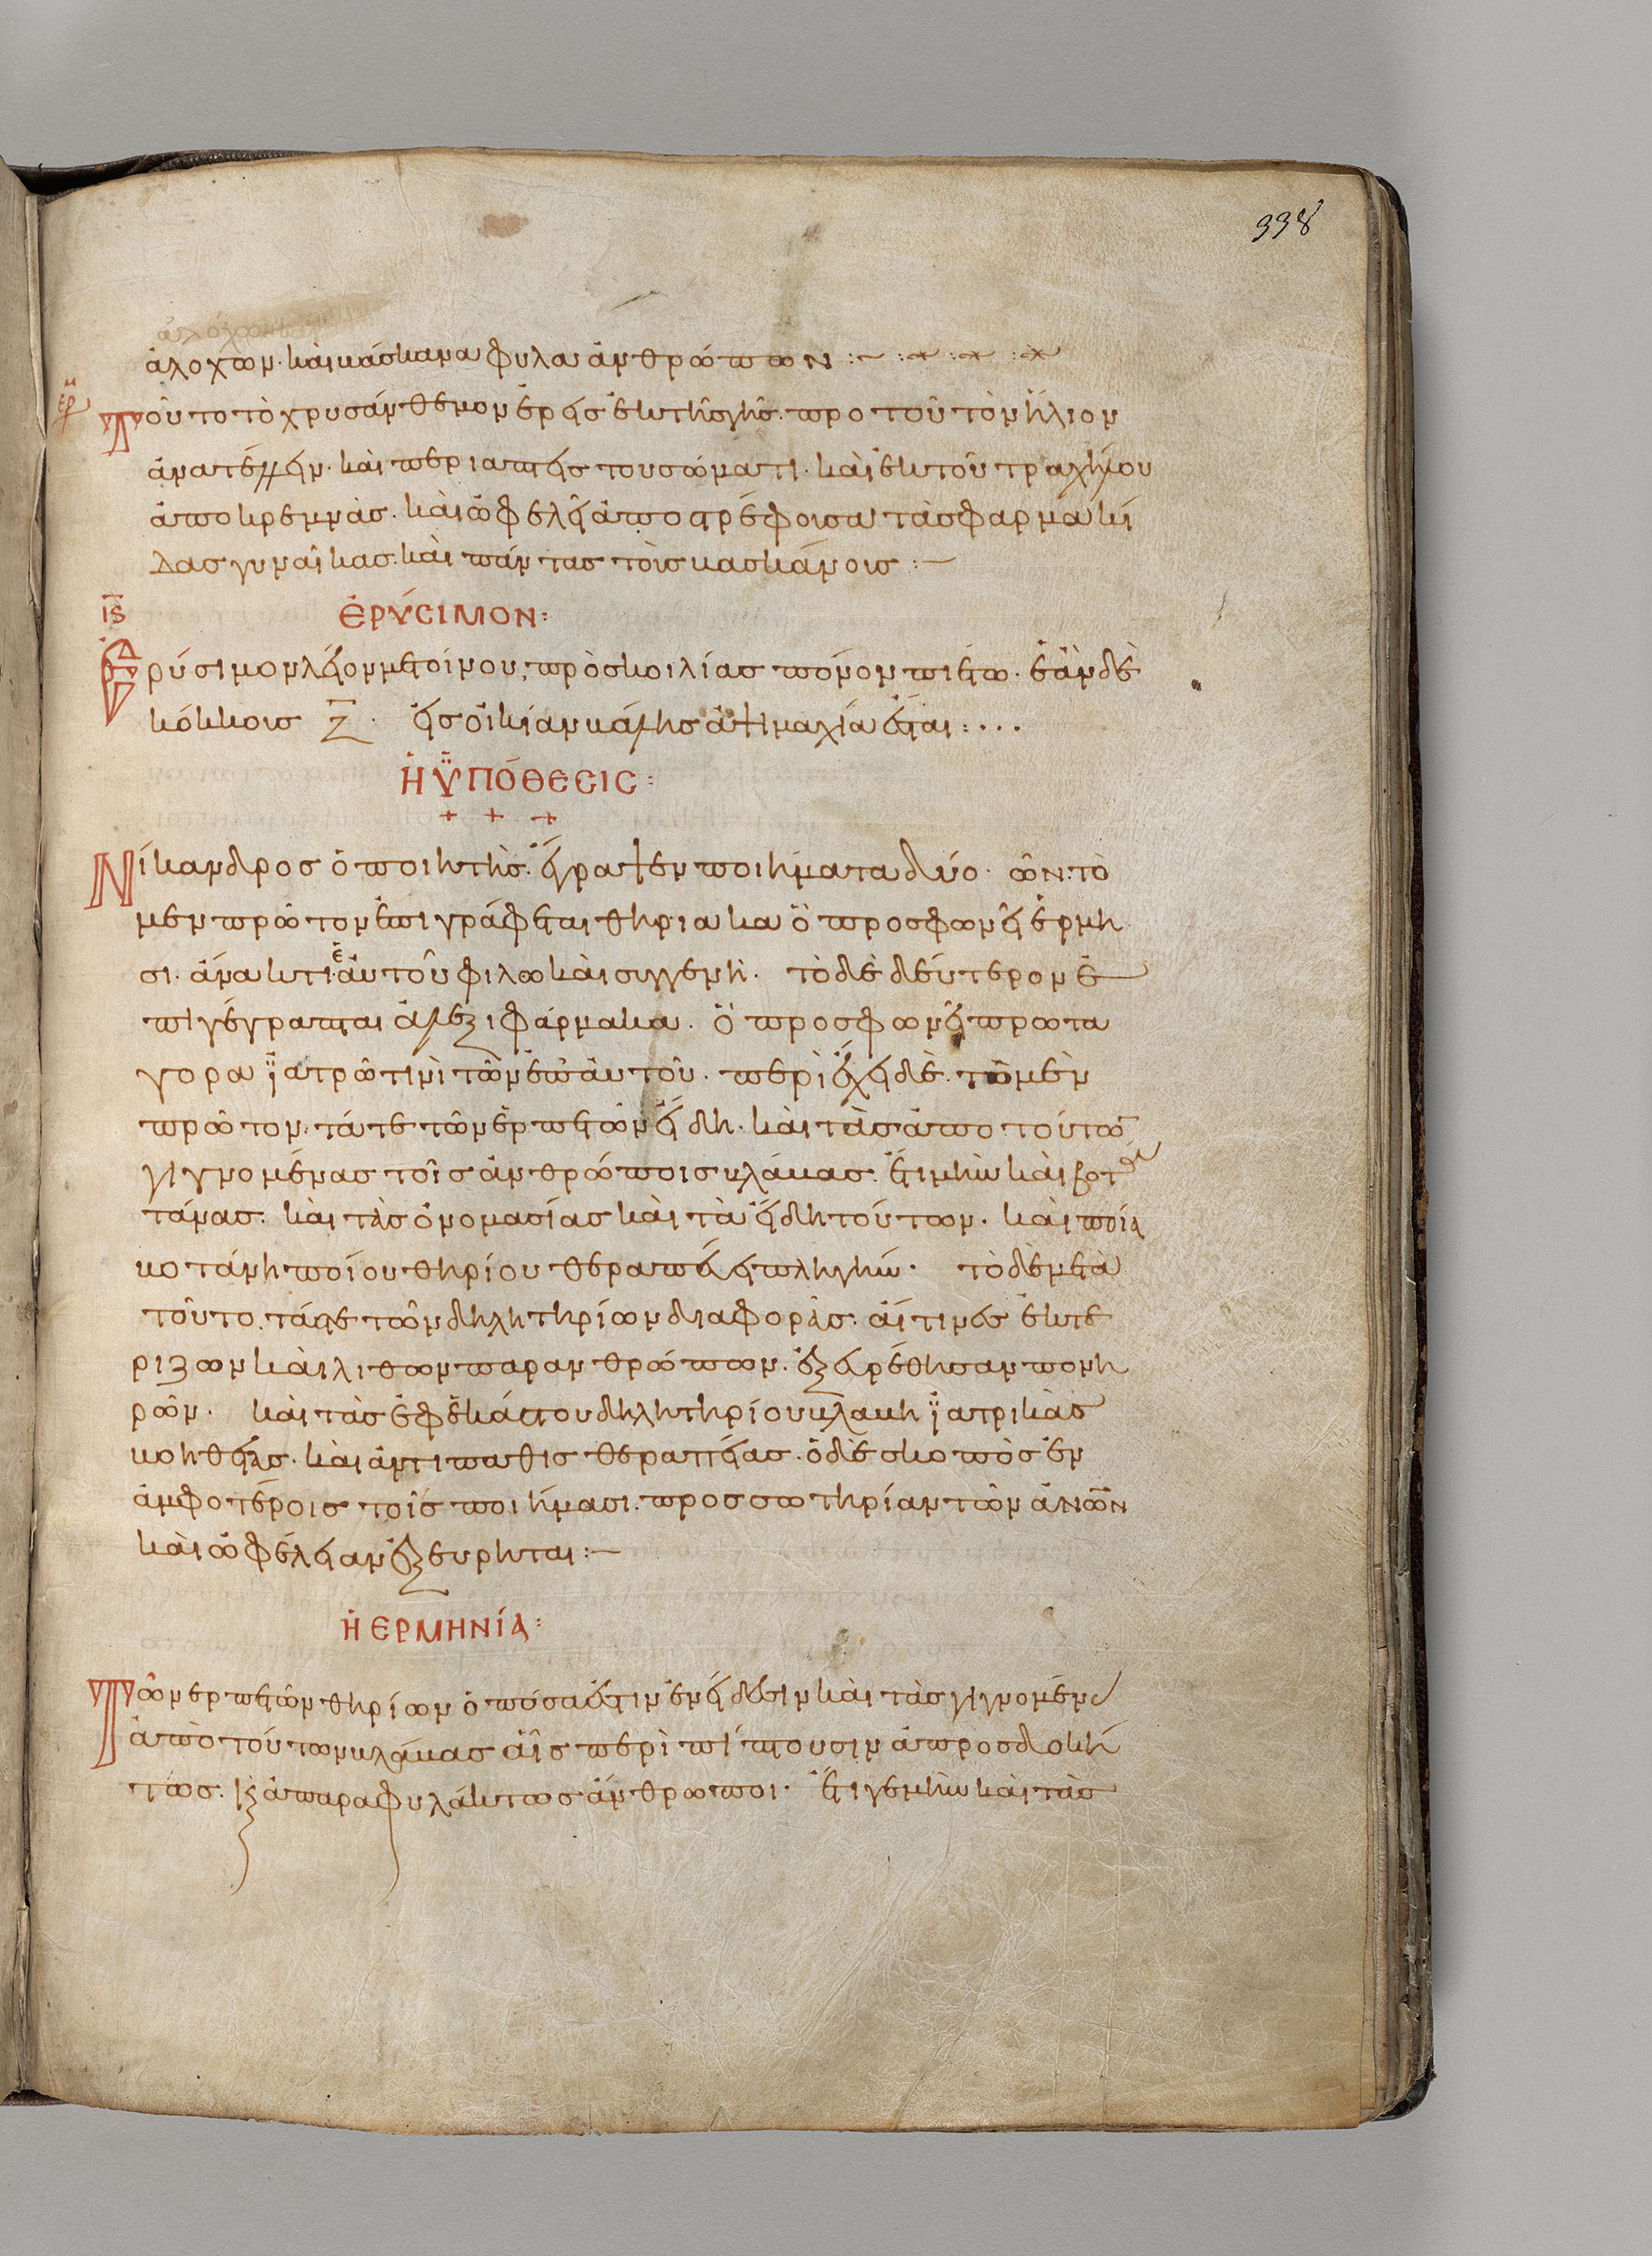 338
ἀλόχων· καὶ βάσκανα φῦλα ἀνθρώπων :~ :~ :~ :~
ἑρ
Τοῦτο τὸ χρυσάνθεμον ἔρεις ἐκ τῆς γῆς· προτοῦ τὸν ἥλιον
ἀνατέλλειν· καὶ περιάπτεις του σώματι· καὶ ἐκ τοῦ τραχήλου
ἀποκρεμνὰς· καὶ ὠφελεῖ ἀποστρέφουσα τὰς φαρμακί
δας γυναῖκας· καὶ πάντας τοὶς βασκάνοις :—
ις ἘΡΎΣΙΜΟΝ:
Ἐρύσιμον λεῖον μετοίνου, πρὸς κοιλίας πόνον πιέτω· ἐὰν δὲ
κόκκοις ζ · εἰς οἰκίαν βάλης ἀψιμαχία ἔσται : ...
Ἡ ὙΠΌΘΕΣΙΣ:
+ + +
Νίκανδρος ὁ ποιητὴς· ἔγραψεν ποιήματα δύο· ὧν τὸ
μεν πρῶτον ἐπιγράφεται θηριακα ὃ προσφωνεῖ ἑρμη
σι· άνακτι ἑαυτοῦ φιλω καὶ συγγενῆ· τὸ δὲ δεύτερον ἐ
πιγέγραπται ἀλεξιφάρμακα· Ὃ προσφωνεῖ πρωτα
γορα ϊατρῶ τινὶ τῶν ἐπ' αὐτοῦ· περιέχει δὲ· τὸ μὲν
πρῶτον· τά τε τῶν ἑρπετῶν εἴδη· καὶ τὰς ἀπο τούτω
γιγνομένας τοῖς ἀνθρώποις βλάβας· ἔτι μὴν καὶ βοτ
τάνας· καὶ τὰς ὀνομασίας καὶ τὰ εἴδη τούτων· καὶ ποία
βοτάνη ποίου θηρίου θεραπεύει πληγήν· τὸ δὲ μετὰ
τοῦτο· τάς τε τῶν δηλητηρίων διαφορὰς· αἵτινες ἔκ τε
ριζων καὶ λιθων παρ ανθρώπων· ἐξευρέθησαν πονη
ρῶν· καὶ τὰς ἐφ ἑκάστου δηλητηρίου βλαβη ϊατρικὰς
βοηθείας· καὶ ἀντιπαθις θεραπείας· ὁ δὲ σκοπὸς ἐν
ἀμφοτέροις τοῖς ποιήμασι· προς σωτηρίαν τῶν ἀνων
καὶ ὠφέλειαν ἐξευρηται :—
Ἡ ΕΡΜΗΝΊΑ:
Τῶν ερπετῶν θηρίων ὁπόσα ἐστιν ἐν εἴδεσιν καὶ τὰς γιγνομένας
ἀπὸ τούτων βλάβας αἷς περιπίπτουσιν ἀπροσδοκή
τως· καὶ ἀπαραφυλάκτως ἄνθρωποι· Ἔτι γε μὴν καὶ τὰς